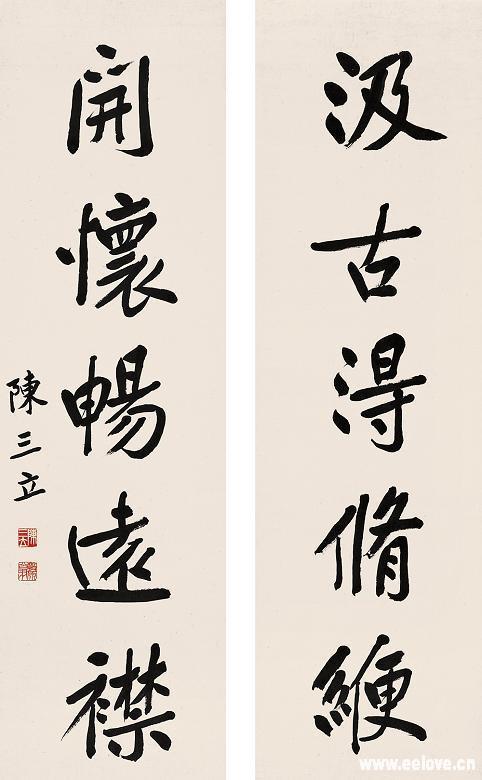 汲古得脩綆
開懷暢遠襟
陳三立
www.eelove.cn